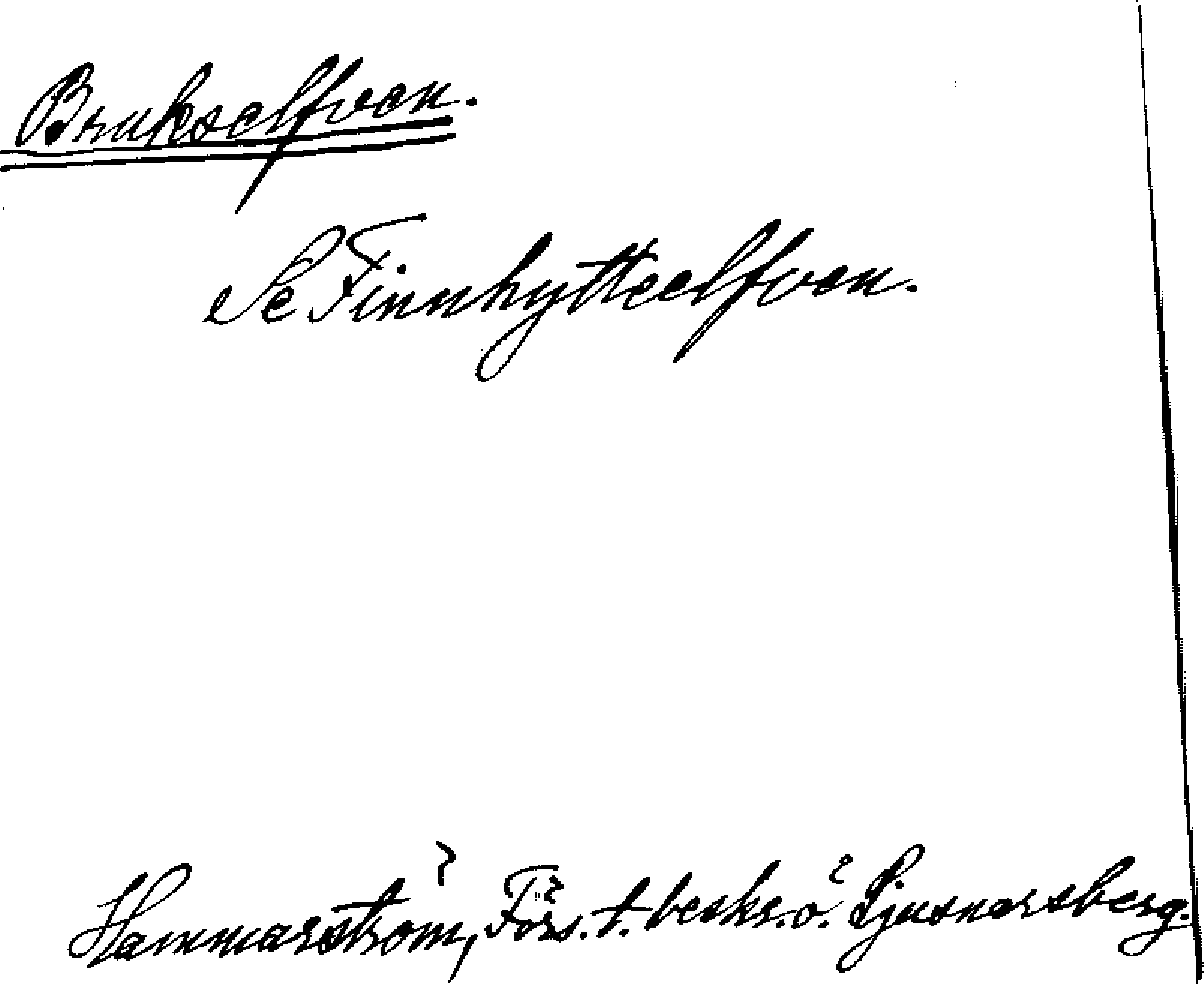 Brukselfven.
Se Finnhytteelfven.
Hammarström, Förs. t. beskr. ö. Ljusnarsberg.